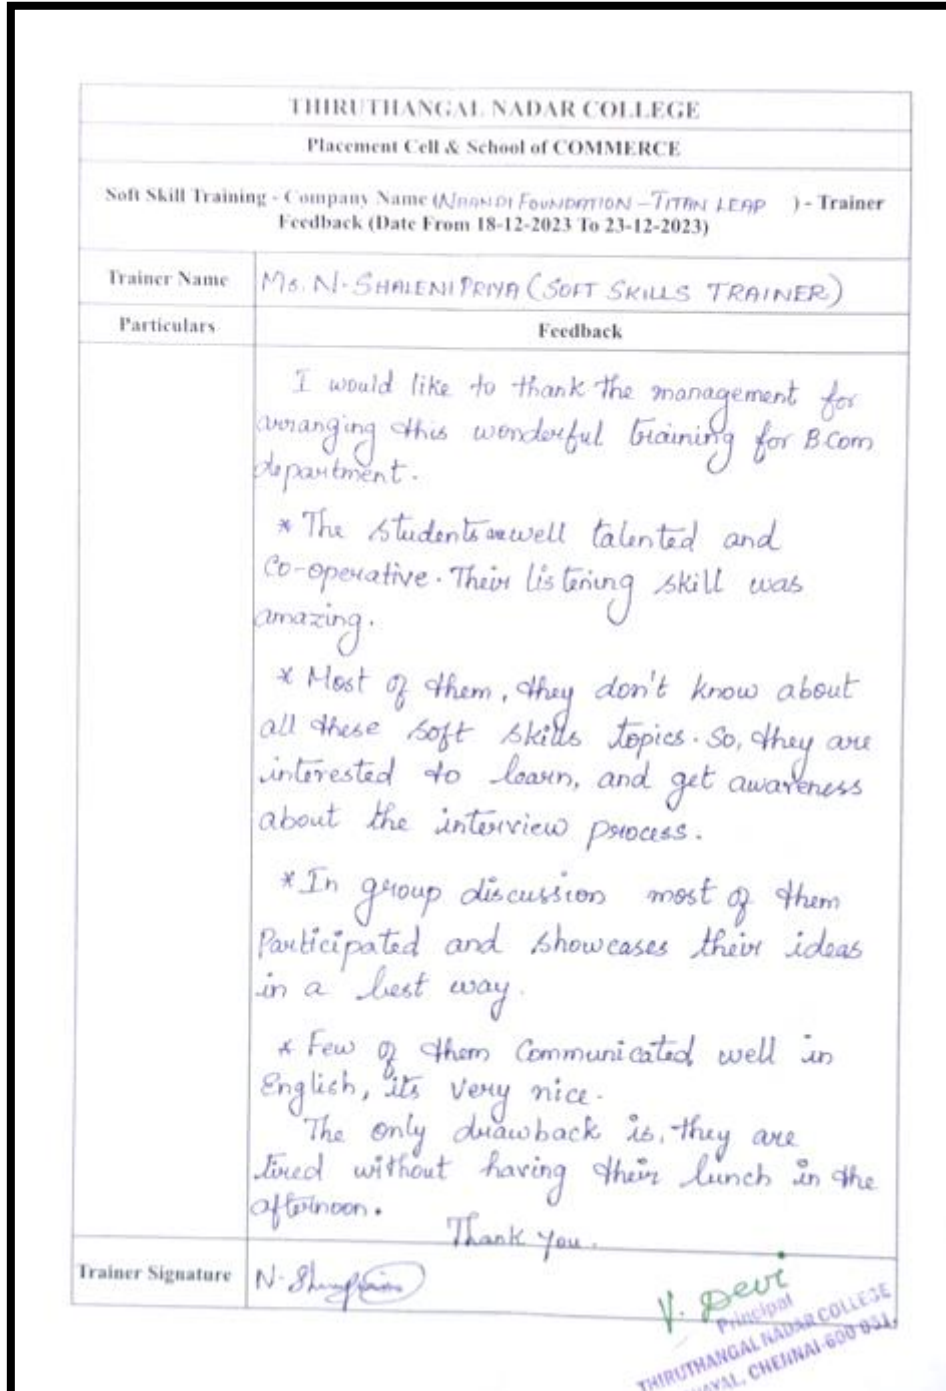 THIRUTHANGAL NADAR COLLEGE
Placement Cell & School of COMMERCE
Soft Skill Training - Company Name (NAANDI FOUNDATION - TITAN LEAP ) - Trainer
Feedback (Date From 18-12-2023 To 23-12-2023)
Trainer Name
Ms. N. SHALENI PRIYA (SOFT SKILLS TRAINER)
Particulars
Feedback
I would like to thank the management for
arranging this wonderful training for B.Com
department.
* The students are well talented and
Co-operative. Their listening skill was
amazing.
* Most of them, they don't know about
all these soft skills topics. So, they are
interested to learn, and get awareness
about the interview process.
* In group discussion most of them
Participated and showcases their ideas
in a best way.
* Few of them Communicated well in
English, its very nice.
The only drawback is, they are
tired without having their lunch in the
afternoon.
Thank you.
Trainer Signature
N.
V. Devi
Principal
THIRUTHANGAL NADAR COLLEGE
CHENNAI-600 051.